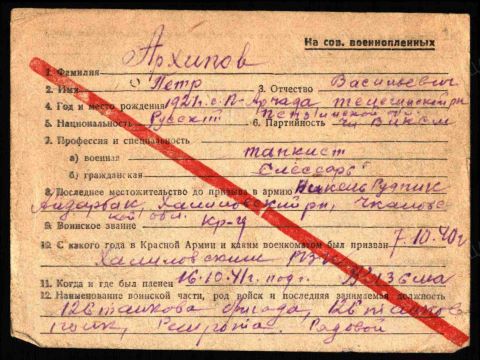 На сов. военнопленных
Архипов
1. Фамилия
2. Имя Петр 3. Отчество Васильевич
4. Год и место рождения 1921 г. с. П-Арчада Телегинский р-н
Пензинской обл.
5. Национальность Русский 6. Партийность чл ВЛКСМ
7. Профессия и специальность
а) военная танкист
б) гражданская слесарь
8. Последнее местожительство до призыва в армию Никель Рудник
Айдарбак, Халиловский рн, Чкаловс
кой обл.
9. Воинское звание кр-ц
10. С какого года в Красной Армии и каким военкоматом был призван 7.10.40 г
Халиловский РВК
11. Когда и где был пленен 16.10.41 г. под г. Вязьма
12. Наименование воинской части, род войск и последняя занимаемая должность
126 танкова бригада, 126 танков
полк, Рядовой